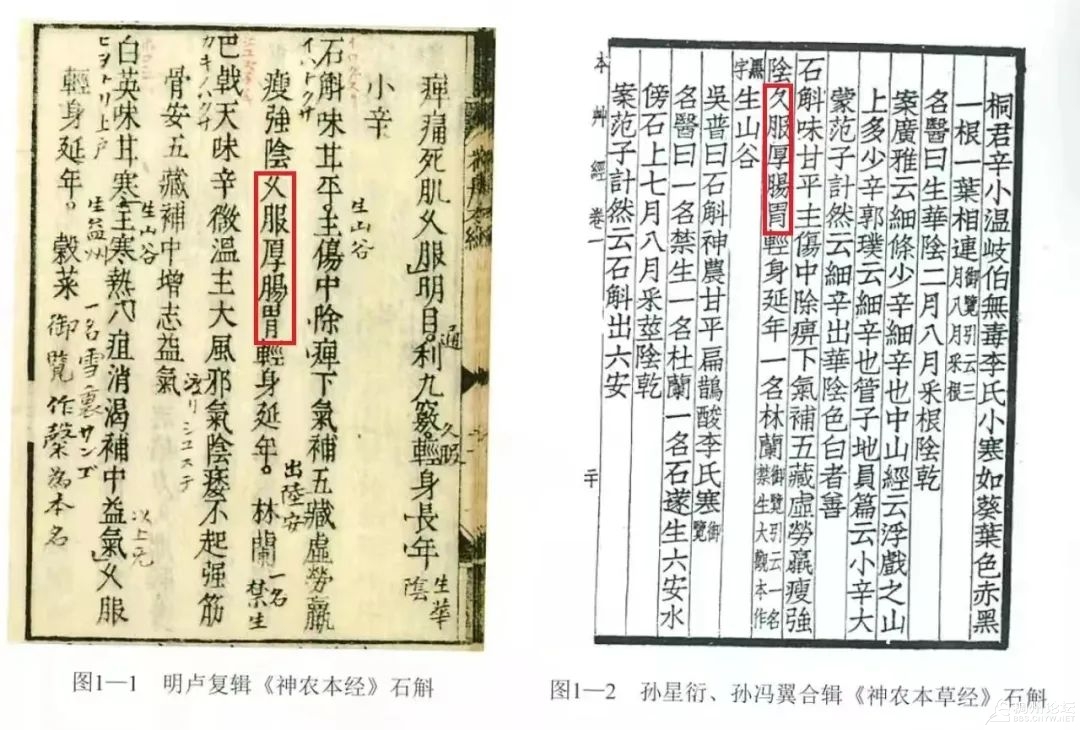 痺痛死肌久服明目。利九竅。輕身長年
生華陰
通
久服
小辛
石斛味甘平。主傷中除痺下氣補五藏虛勞羸
イハトクサ
生山谷
瘦強陰久服厚腸胃輕身延年。林蘭
出陸安
一名禁生
巴戟天味辛微溫主大風邪氣陰痿不起强筋
カキノハクサ
骨安五藏補中增志益氣
生山谷
白英味甘寒主寒熱八疸消渴補中益氣久服
ヒヨトリ上戸
生益州
一名雪裏サンゴ
以上元
輕身延年。穀菜
御覽作
為本名
图1—1 明卢复辑《神农本经》石斛
桐君辛小溫岐伯無毒李氏小寒如葵葉色赤黑
一根一葉相連御覽引云三月八月采根
名醫曰生華陰二月八月采根陰乾
案廣雅云細條少辛細辛也中山經云浮戲之山
上多少辛郭璞云細辛也管子地員篇云小辛大
蒙范子計然云細辛出華陰色白者善
石斛味甘平主傷中除痹下氣補五藏虛勞羸瘦強
陰久服厚腸胃輕身延年一名林蘭御覽引云一名禁生大觀本作
黑字
生山谷
吳普曰石斛神農甘平扁鵲酸李氏寒御覽
名醫曰一名禁生一名杜蘭一名石蓫生六安水
傍石上七月八月采莖陰乾
案范子計然云石斛出六安
本艸經卷一
图1—2 孙星衍、孙冯翼合辑《神农本草经》石斛